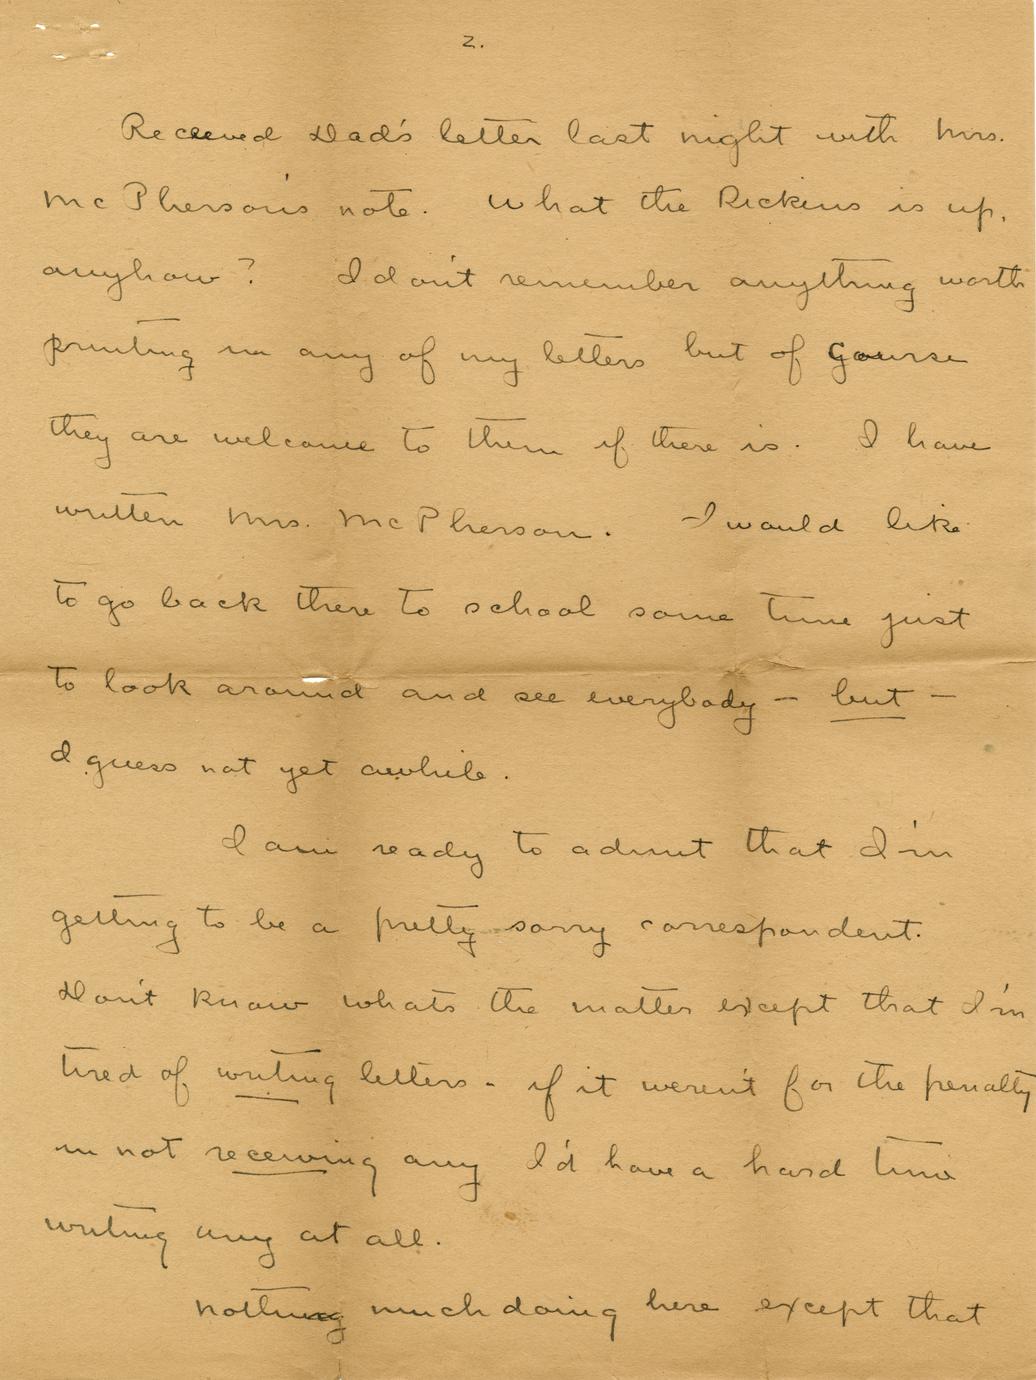 2.
Received Dad's letter last night with Mrs.
McPherson's note. What the Rickins is up,
anyhow? I don't remember anything worth
printing in any of my letters but of course
they are welcome to them if there is. I have
written Mrs. McPherson. I would like
to go back there to school some time just
to look around and see everybody — but —
I guess not yet awhile.
I am ready to admit that I'm
getting to be a pretty sorry correspondent.
Don't know whats the matter except that I'm
tired of writing letters - if it weren't for the penalty
in not receiving any I'd have a hard time
writing any at all.
Nothing much doing here except that